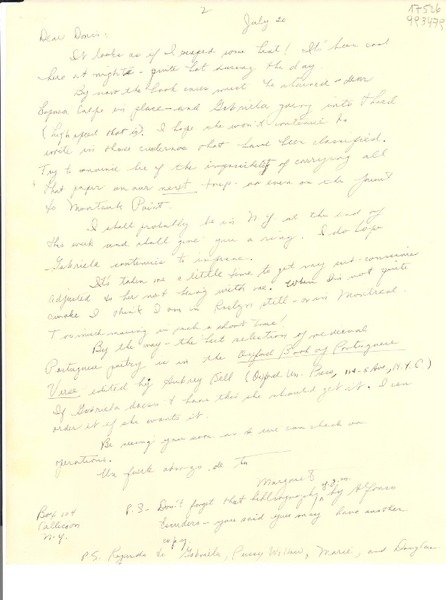 2
17526
993479
July 20
Dear Doris:
It looks as if I escaped some heat! It's been cool
here at nights - quite hot during the day.
By now the book cases must be stained - Don
in place - and Gabriela going into third
(high speed that is). I hope she won't continue to
write in those cuadernos that have been classified.
Try to convince her of the impossibility of carrying all
that paper on our next trip - or even on the jaunt
to Montauk Point.
I shall probably be in N.Y. at the end of
the week and shall give you a ring. I do hope
Gabriela continues to improve.
It's taken me a little time to get my sub-conscious
adjusted to her not being with me. When I'm not quite
awake I think I am in Roslyn still - or in Montreal.
Too much moving in such a short time!
By the way - the best selection of mediaeval
Portuguese poetry is in the Oxford Book of Portuguese
Verse edited by Aubrey Bell (Oxford Un. Press, 114-5 Ave, N.Y.C.)
If Gabriela doesn't have this she should get it. I can
order it if she wants it.
Be seeing you soon so we can check on
operations.
Un fuerte abrazo de tu
Margaret
Box 104
Callicoon
N.Y.
P.S. Don't forget that bibliography by Alfonso
- you said you may have another
copy
P.S. Regards to Gabriela, and Douglas